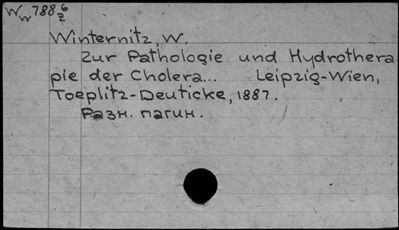 Ww 788 6/2
Winternitz, W.
Zur Pathologie und Hydrothera
pie der Cholera... Leipzig-Wien,
Toeplitz-Deuticke, 1887.
Разн. пагин.